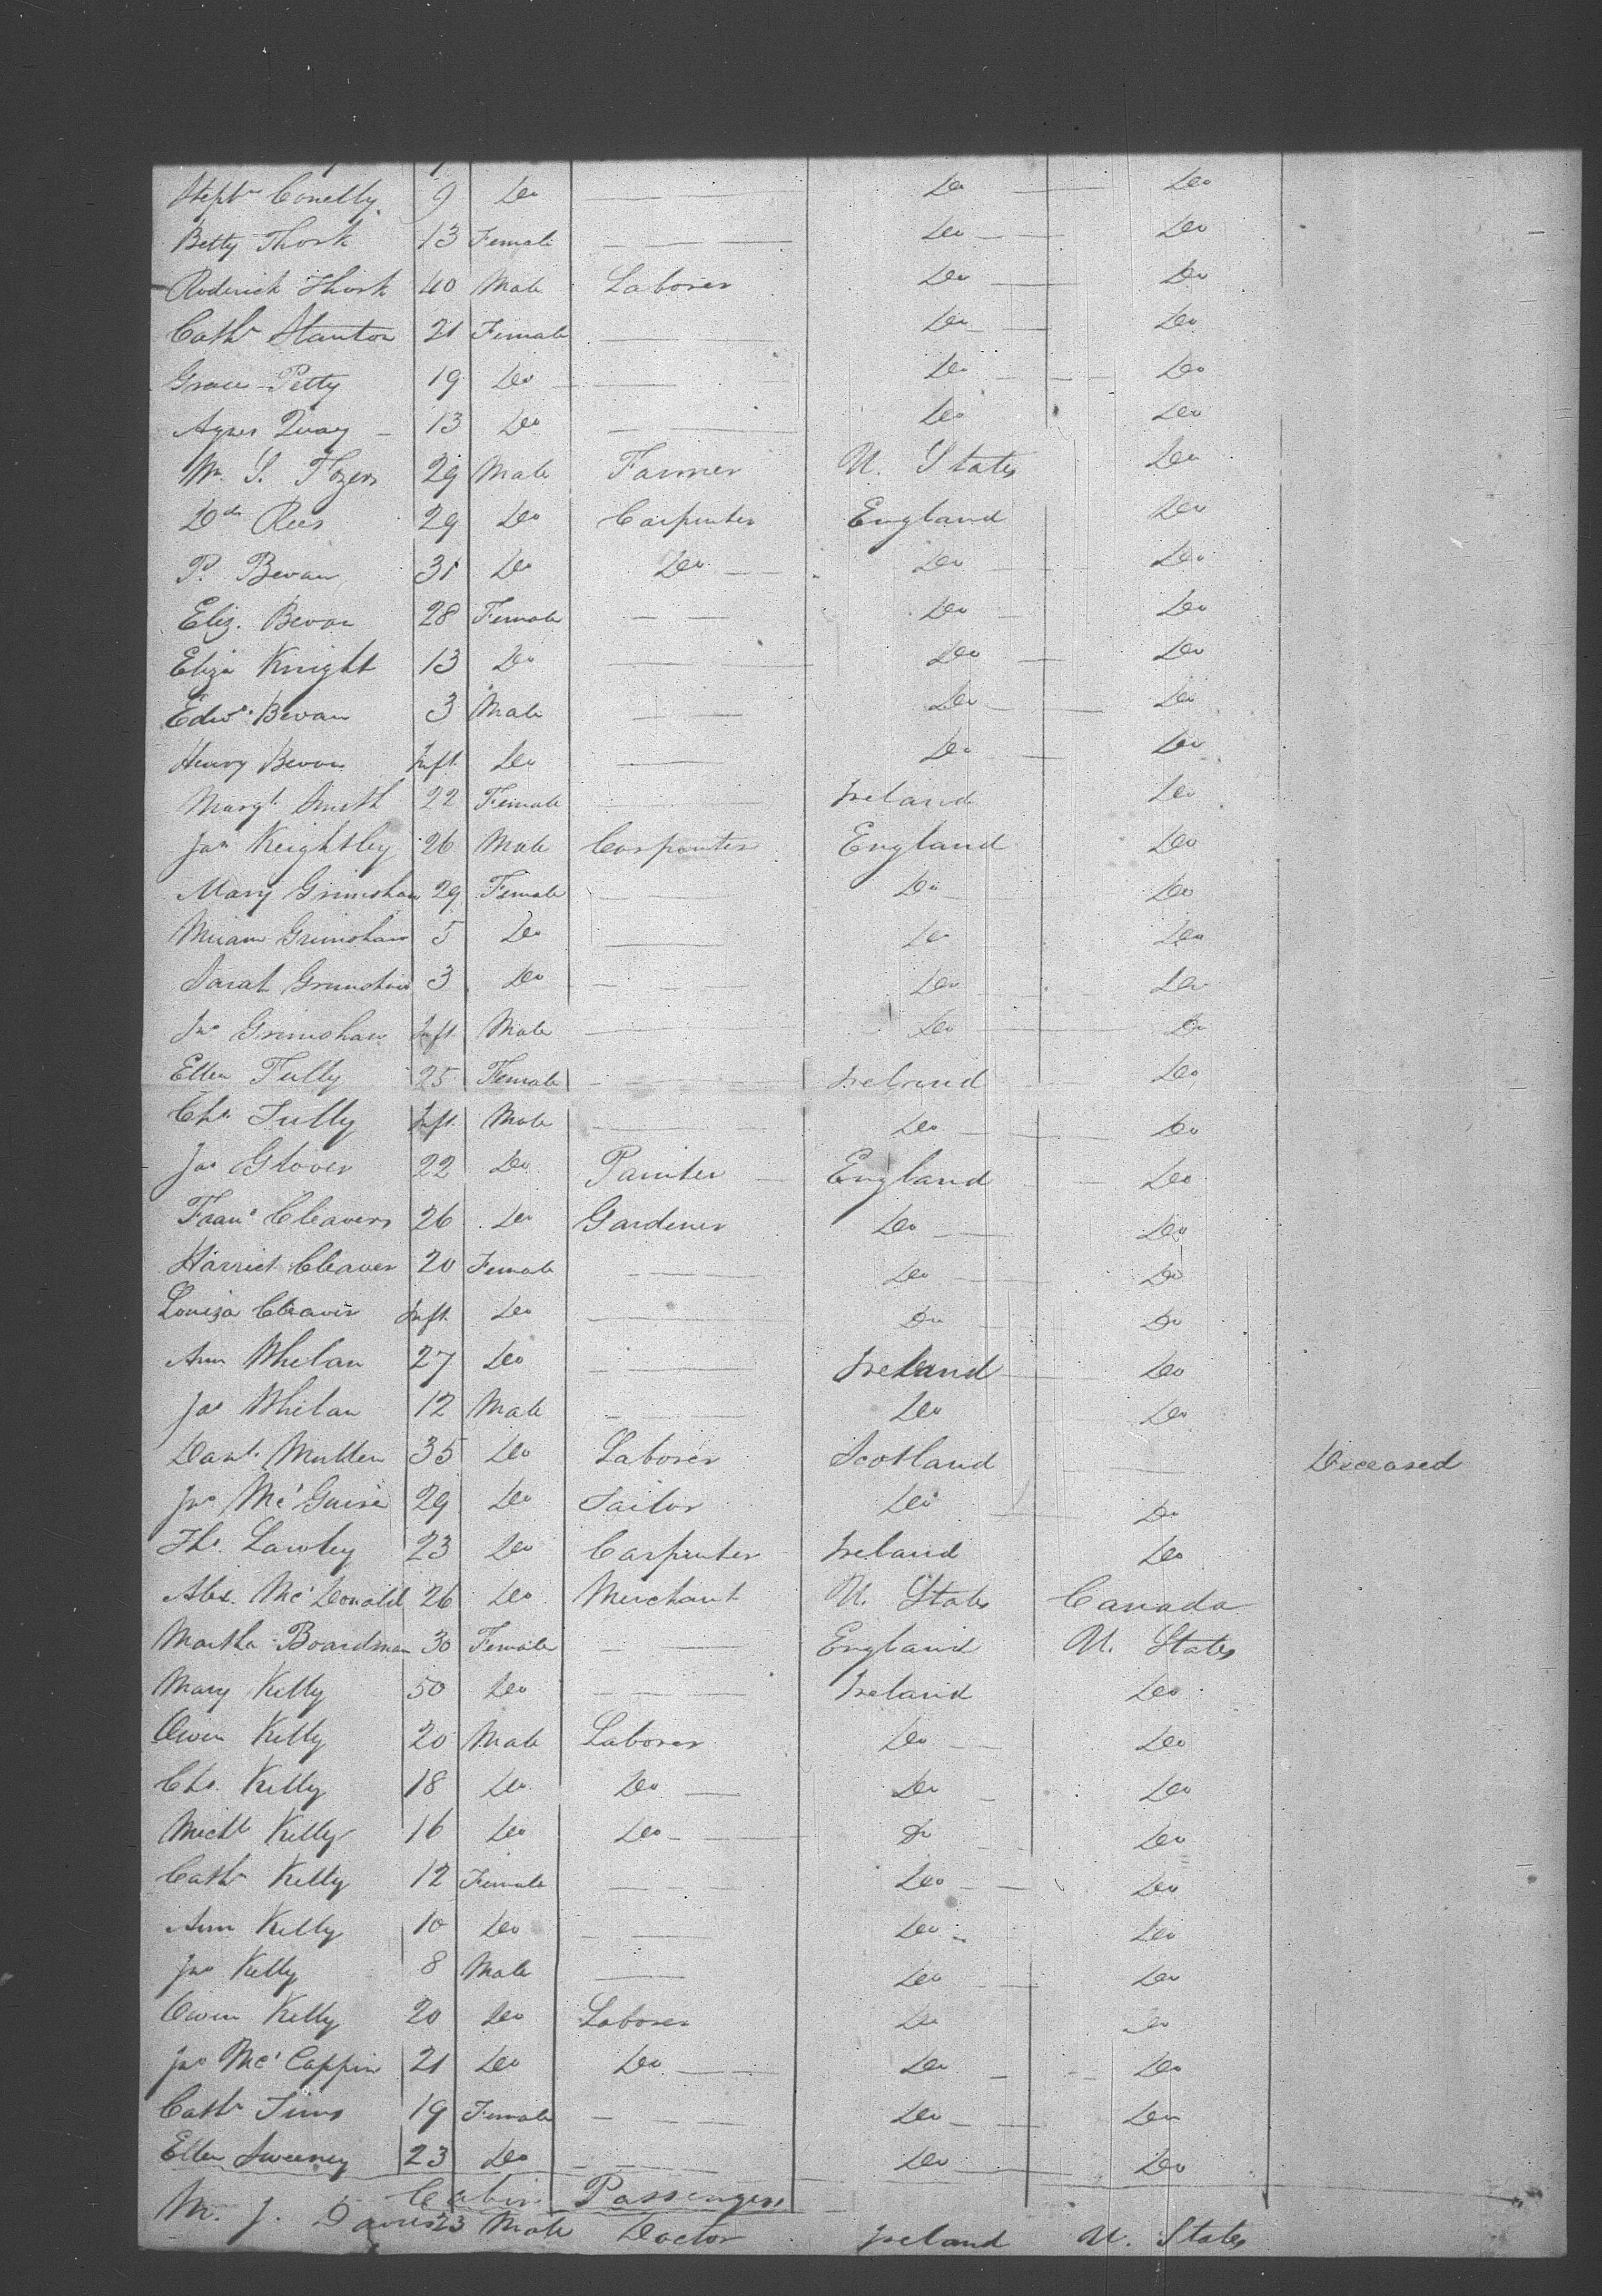 Steph Conelly 9 Do Do Do
Betty Thork 13 Female Do Do
Roderick Thork 40 Male Laborer Do Do
Cath Stanton 21 Female Do Do
Grace Petty 19 Do Do Do
Agnes Quay 13 Do Do Do
Wm S. 29 Male Farmer U. States Do
Dd Rees 29 Do Carpenter England Do
P. Bevan 31 Do Do Do Do
Eliz. Bevan 28 Female Do Do
Eliza Knight 13 Do Do Do
Edwd Bevan 3 Male Do Do
Henry Bevan Inft Do Do Do
Margt Smith 22 Female Ireland Do
Jas Keightley 26 Male Carpenter England Do
Mary Grimshaw 29 Female Do Do
Miriam Grimshaw 5 Do Do Do
Sarah Grimshaw 3 Do Do Do
Jno Grimshaw Inft Male Do Do
Ellen Tully 25 Female Ireland Do
Chs Tully Inft Male Do Do
Jas Glover 22 Do Painter England Do
Frans Cleavers 26 Do Gardener Do Do
Harriet Cleaver 20 Female Do Do
Louiza Cleaver Inft Do Do Do
Ann Whelan 27 Do Ireland Do
Jas Whelan 12 Male Do Do
Danl. Mullen 35 Do Laborer Scotland Deceased
Jno McGuire 29 Do Tailor Do Do
Ths. Lawley 23 Do Carpenter Ireland Do
Alex. McDonald 26 Do Merchant U. States Canada
Martha Boardman 30 Female England U. States
Mary Kelly 50 Do Ireland Do
Owen Kelly 20 Male Laborer Do Do
Chs. Kelly 18 Do Do Do Do
Michl Kelly 16 Do Do Do Do
Cath Kelly 12 Female Do Do
Ann Kelly 10 Do Do Do
Jno Kelly 8 Male Do Do
Owen Kelly 20 Do Laborer Do Do
Jno McCappin 21 Do Do Do Do
Cath Sims 19 Female Do Do
Ellen Sweeney 23 Do Do Do
Cabin Passengers
M. J. Davies 23 Male Doctor Ireland U. States